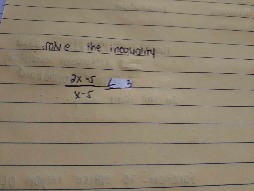 solve the inequality
2x-5
x-5 ≤ 3